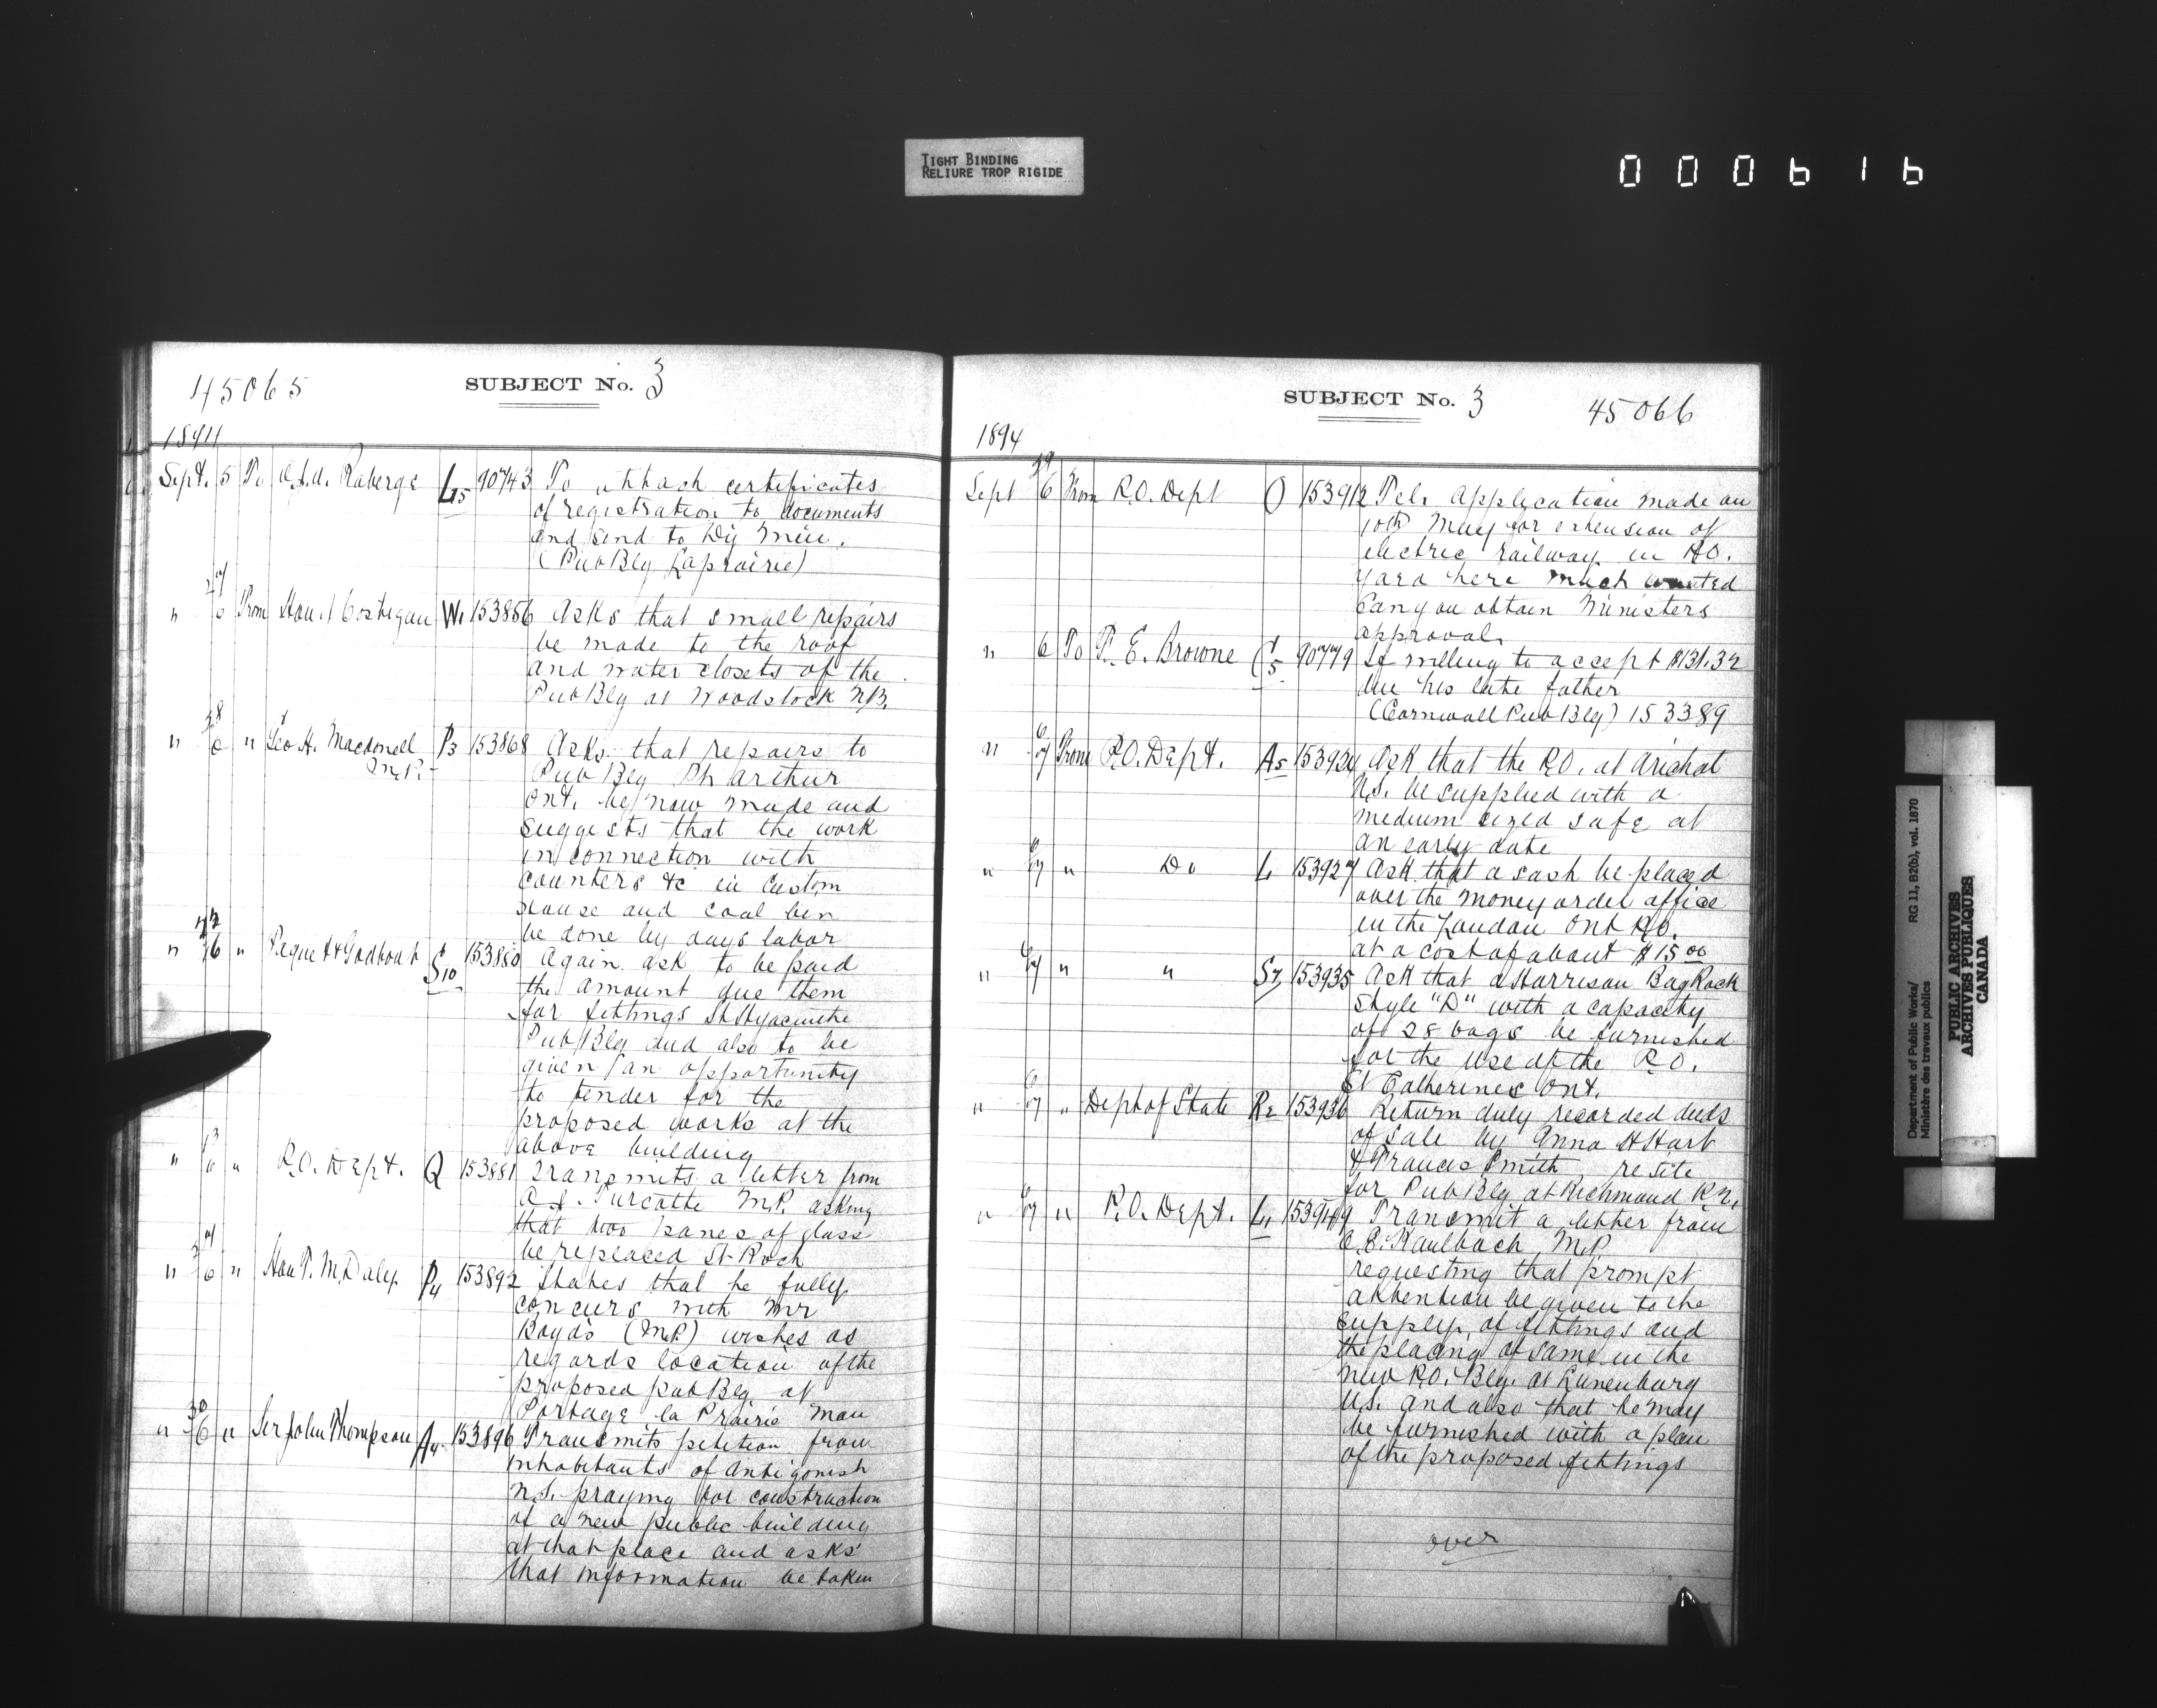 TIGHT BINDING
RELIURE TROP RIGIDE
000616
45065
SUBJECT No. 3
1894
Sept. 5 To Roberge L5 90743 To attach certificates
of registration to documents
and send to Dy Min.
(Pub Blg Laprairie)
" 6 From Hon J Costigan W1 153856 Asks that small repairs
be made to the roof
and water closets of the
Pub Blg at Woodstock N.B.
" 6 " Geo H. Macdonell P3 153868 Asks that repairs to
M.P. Pub Blg Pt Arthur
Ont. be now made and
suggests that the work
in connection with
counters &c in Custom
House and coal bin
be done by days labor
" 6 " Paquet & Godbout S10 153880 Again ask to be paid
the amount due them
for fittings St Hyacinthe
Pub Blg and also to be
given an opportunity
to tender for the
proposed works at the
above building
" 6 " P.O. Dept. Q 153881 Transmits a letter from
A.J. Turcotte M.P. asking
that two panes of glass
be replaced St Roch
" 6 " Hon T. M. Daly P4 153892 States that he fully
concurs with Mr
Boyd's (M.P.) wishes as
regards location of the
proposed pub Blg at
Portage la Prairie Man
" 6 " Sir John Thompson A4 153896 Transmits petition from
inhabitants of Antigonish
N.S. praying for construction
of a new public building
at that place and asks
that information be taken
SUBJECT No. 3
45066
1894
Sept 6 From P.O. Dept O 153912 Tel. Application made on
10th May for extension of
electric railway in P.O.
yard here much wanted
Can you obtain Ministers
approval.
" 6 To P. E. Browne C5 90779 If willing to accept $131.32
due his late father
(Cornwall Pub Blg) 153389
" 6/7 From P.O. Dept. A5 153924 Ask that the P.O. at Arichat
N.S. be supplied with a
medium sized safe at
an early date
" 6/7 " Do L1 153927 Ask that a sash be placed
over the money order office
in the London Ont P.O.
at a cost of about $15.00
" 6/7 " " S7 153935 Ask that a Harrison Bag Rack
Style "D" with a capacity
of 28 bags be furnished
for the use of the P.O.
St Catherines Ont.
" 6/7 " Dept of State R2 153936 Return duly recorded deeds
of sale by Anna H Hart
& Francis Smith re site
for Pub Blg at Richmond P.Q.
" 6/7 " P.O. Dept. L1 153949 Transmit a letter from
C.E. Kaulbach M.P.
requesting that prompt
attention be given to the
supply of fittings and
the placing of same in the
new P.O. Blg. at Lunenburg
N.S. and also that he may
be furnished with a plan
of the proposed fittings
over
Department of Public Works/
Ministère des travaux publics
RG 11, B2(b), vol. 1870
PUBLIC ARCHIVES
ARCHIVES PUBLIQUES
CANADA